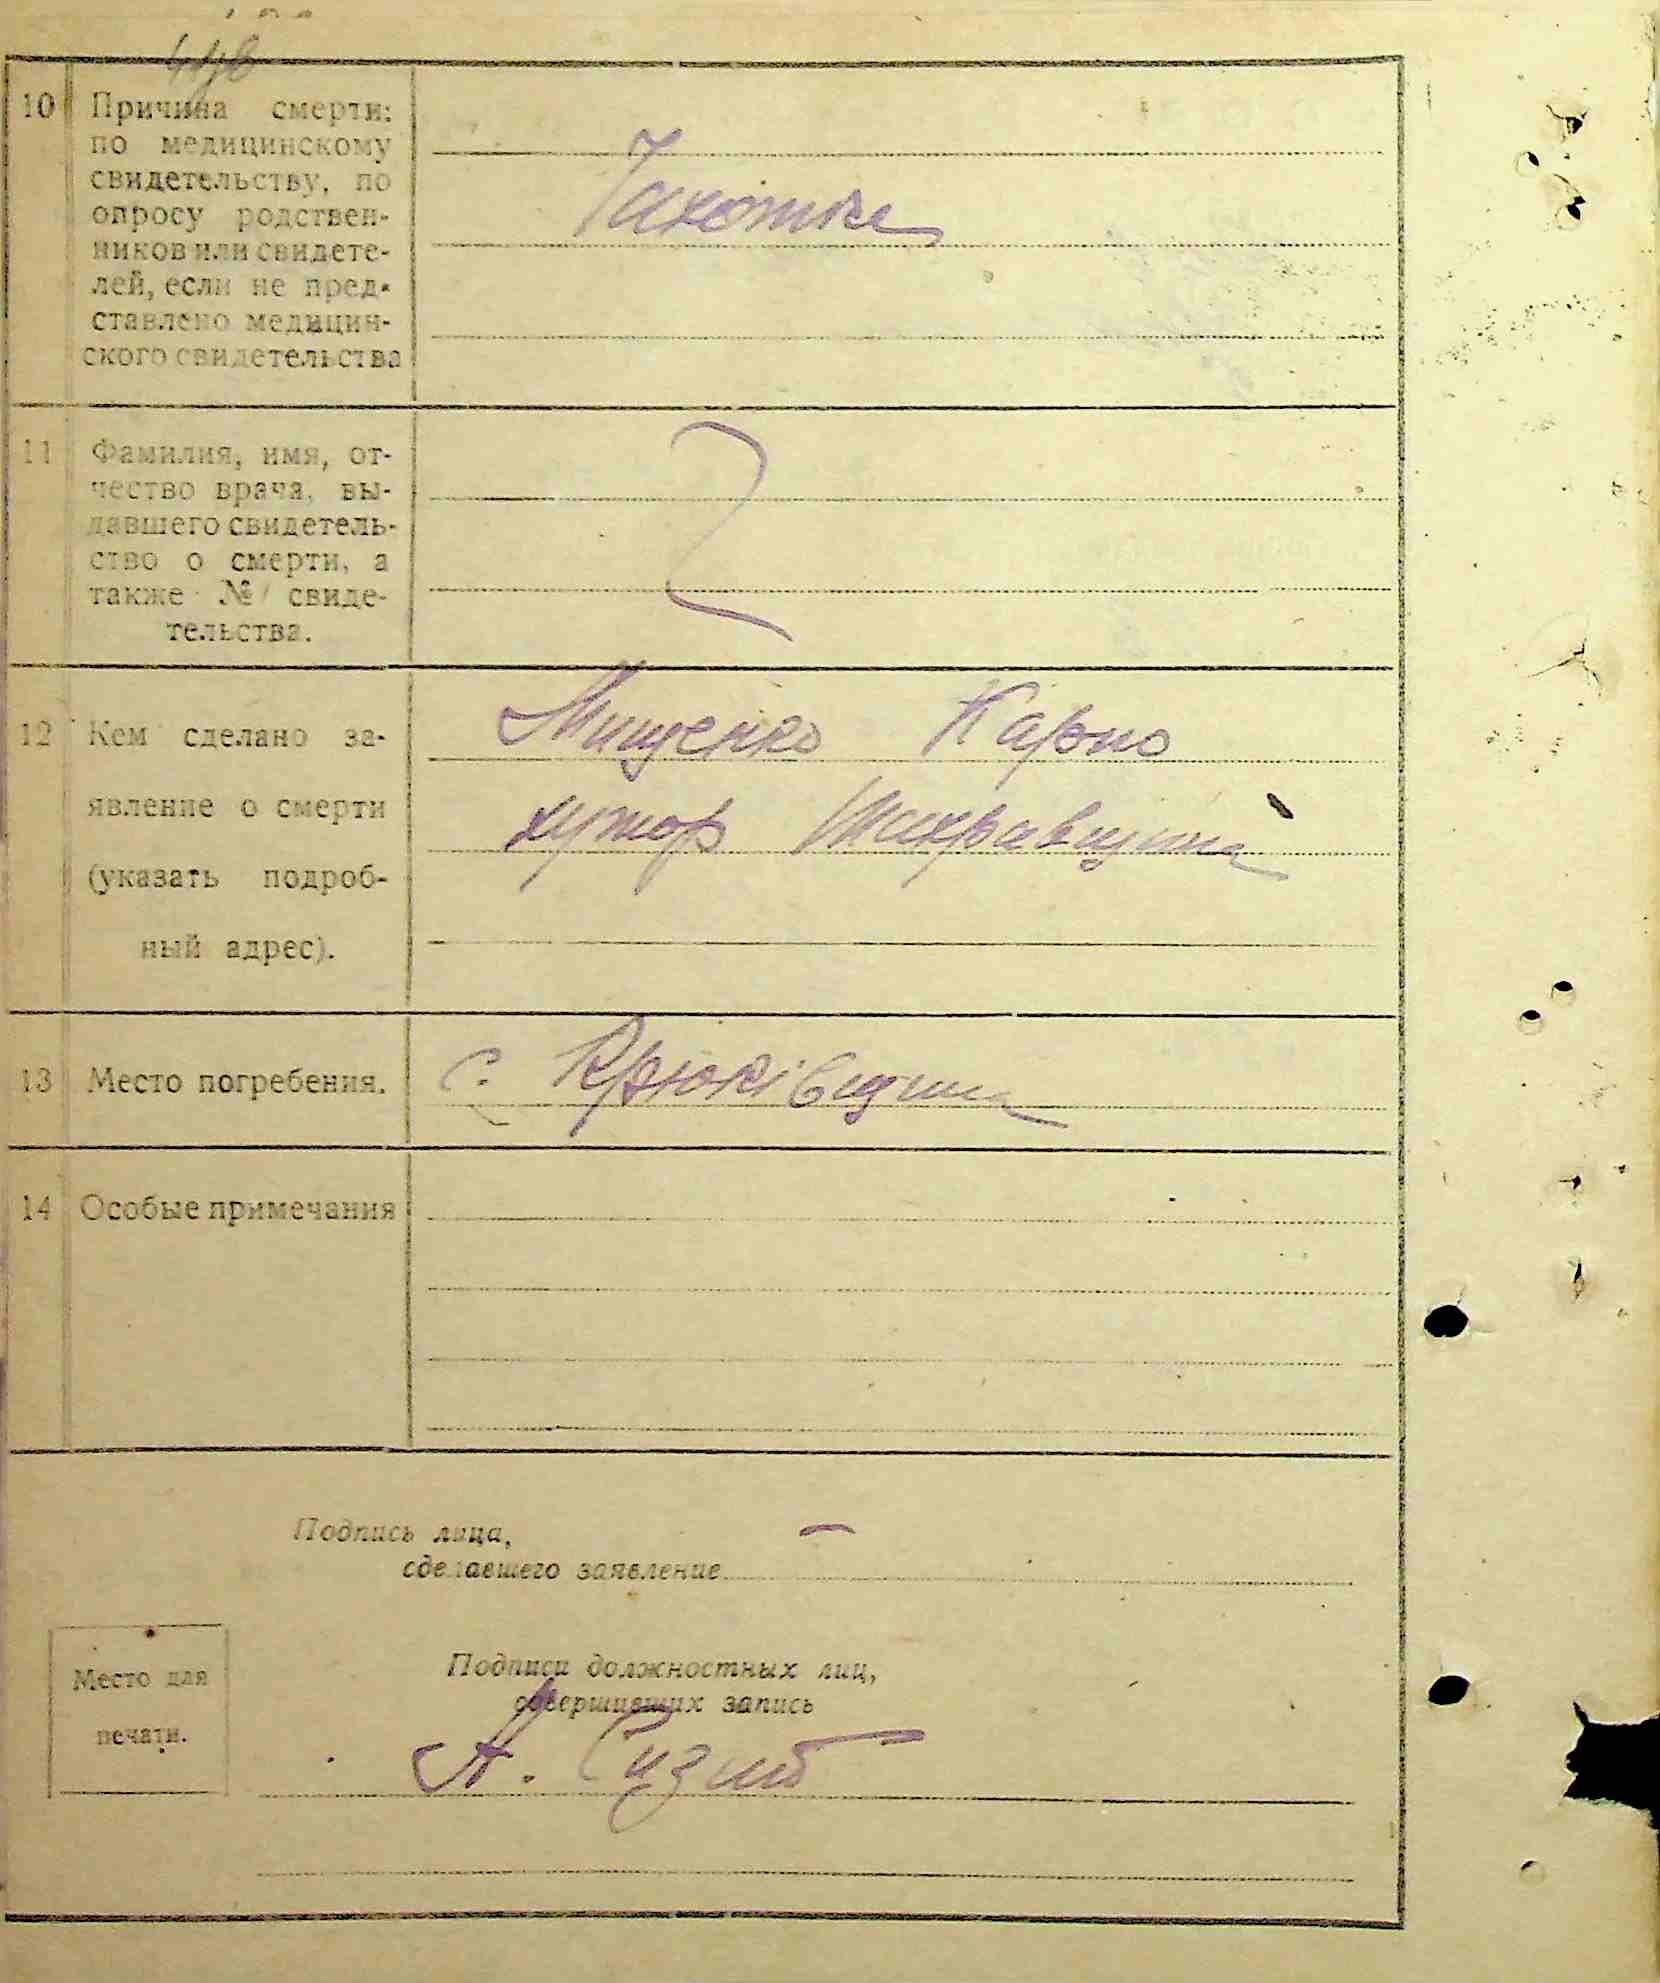 10 Причина смерти:
по медицинскому
свидетельству, по
опросу родствен-
ников или свидете-
лей, если не пред-
ставлено медицин-
ского свидетельства
Чахотка
11 Фамилия, имя, от-
чество врача, вы-
давшего свидетель-
ство о смерти, а
также № свиде-
тельства.
12 Кем сделано за-
явление о смерти
(указать подроб-
ный адрес).
Мищенко Карпо
хутор Шахравщина
13 Место погребения.
с. Крюківщина
14 Особые примечания
Подпись лица,
сделавшего заявление
Место для
печати.
Подписи должностных лиц,
совершивших запись
А.